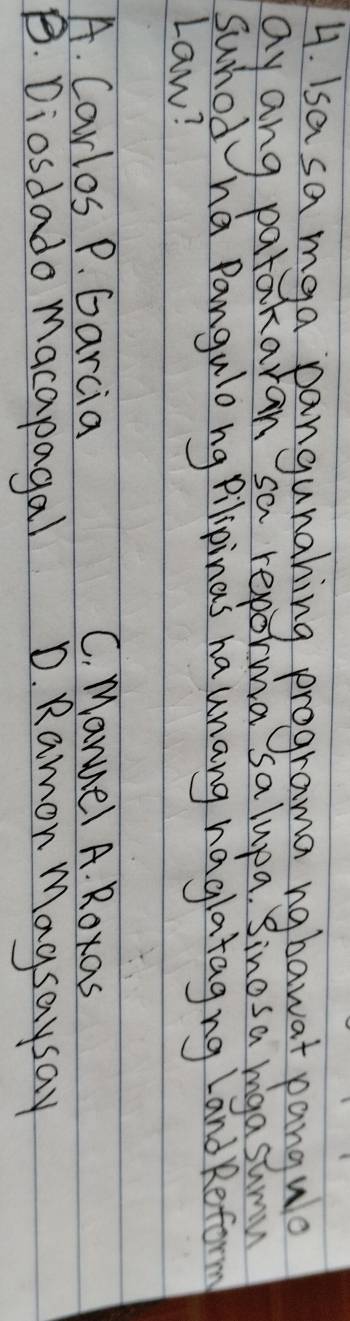 4. Isa sa mga pangunahing programa ng bawat pangulo
ay ang patakaran sa reporma sa lupa. Sino sa mga sumu
sunod na Pangulo ng Pilipinas na unang naglatag ng Land Reform
Law?
A. Carlos P. Garcia C. Manuel A. Roxas
B. Diosdado Macapagal D. Ramon Magsaysay